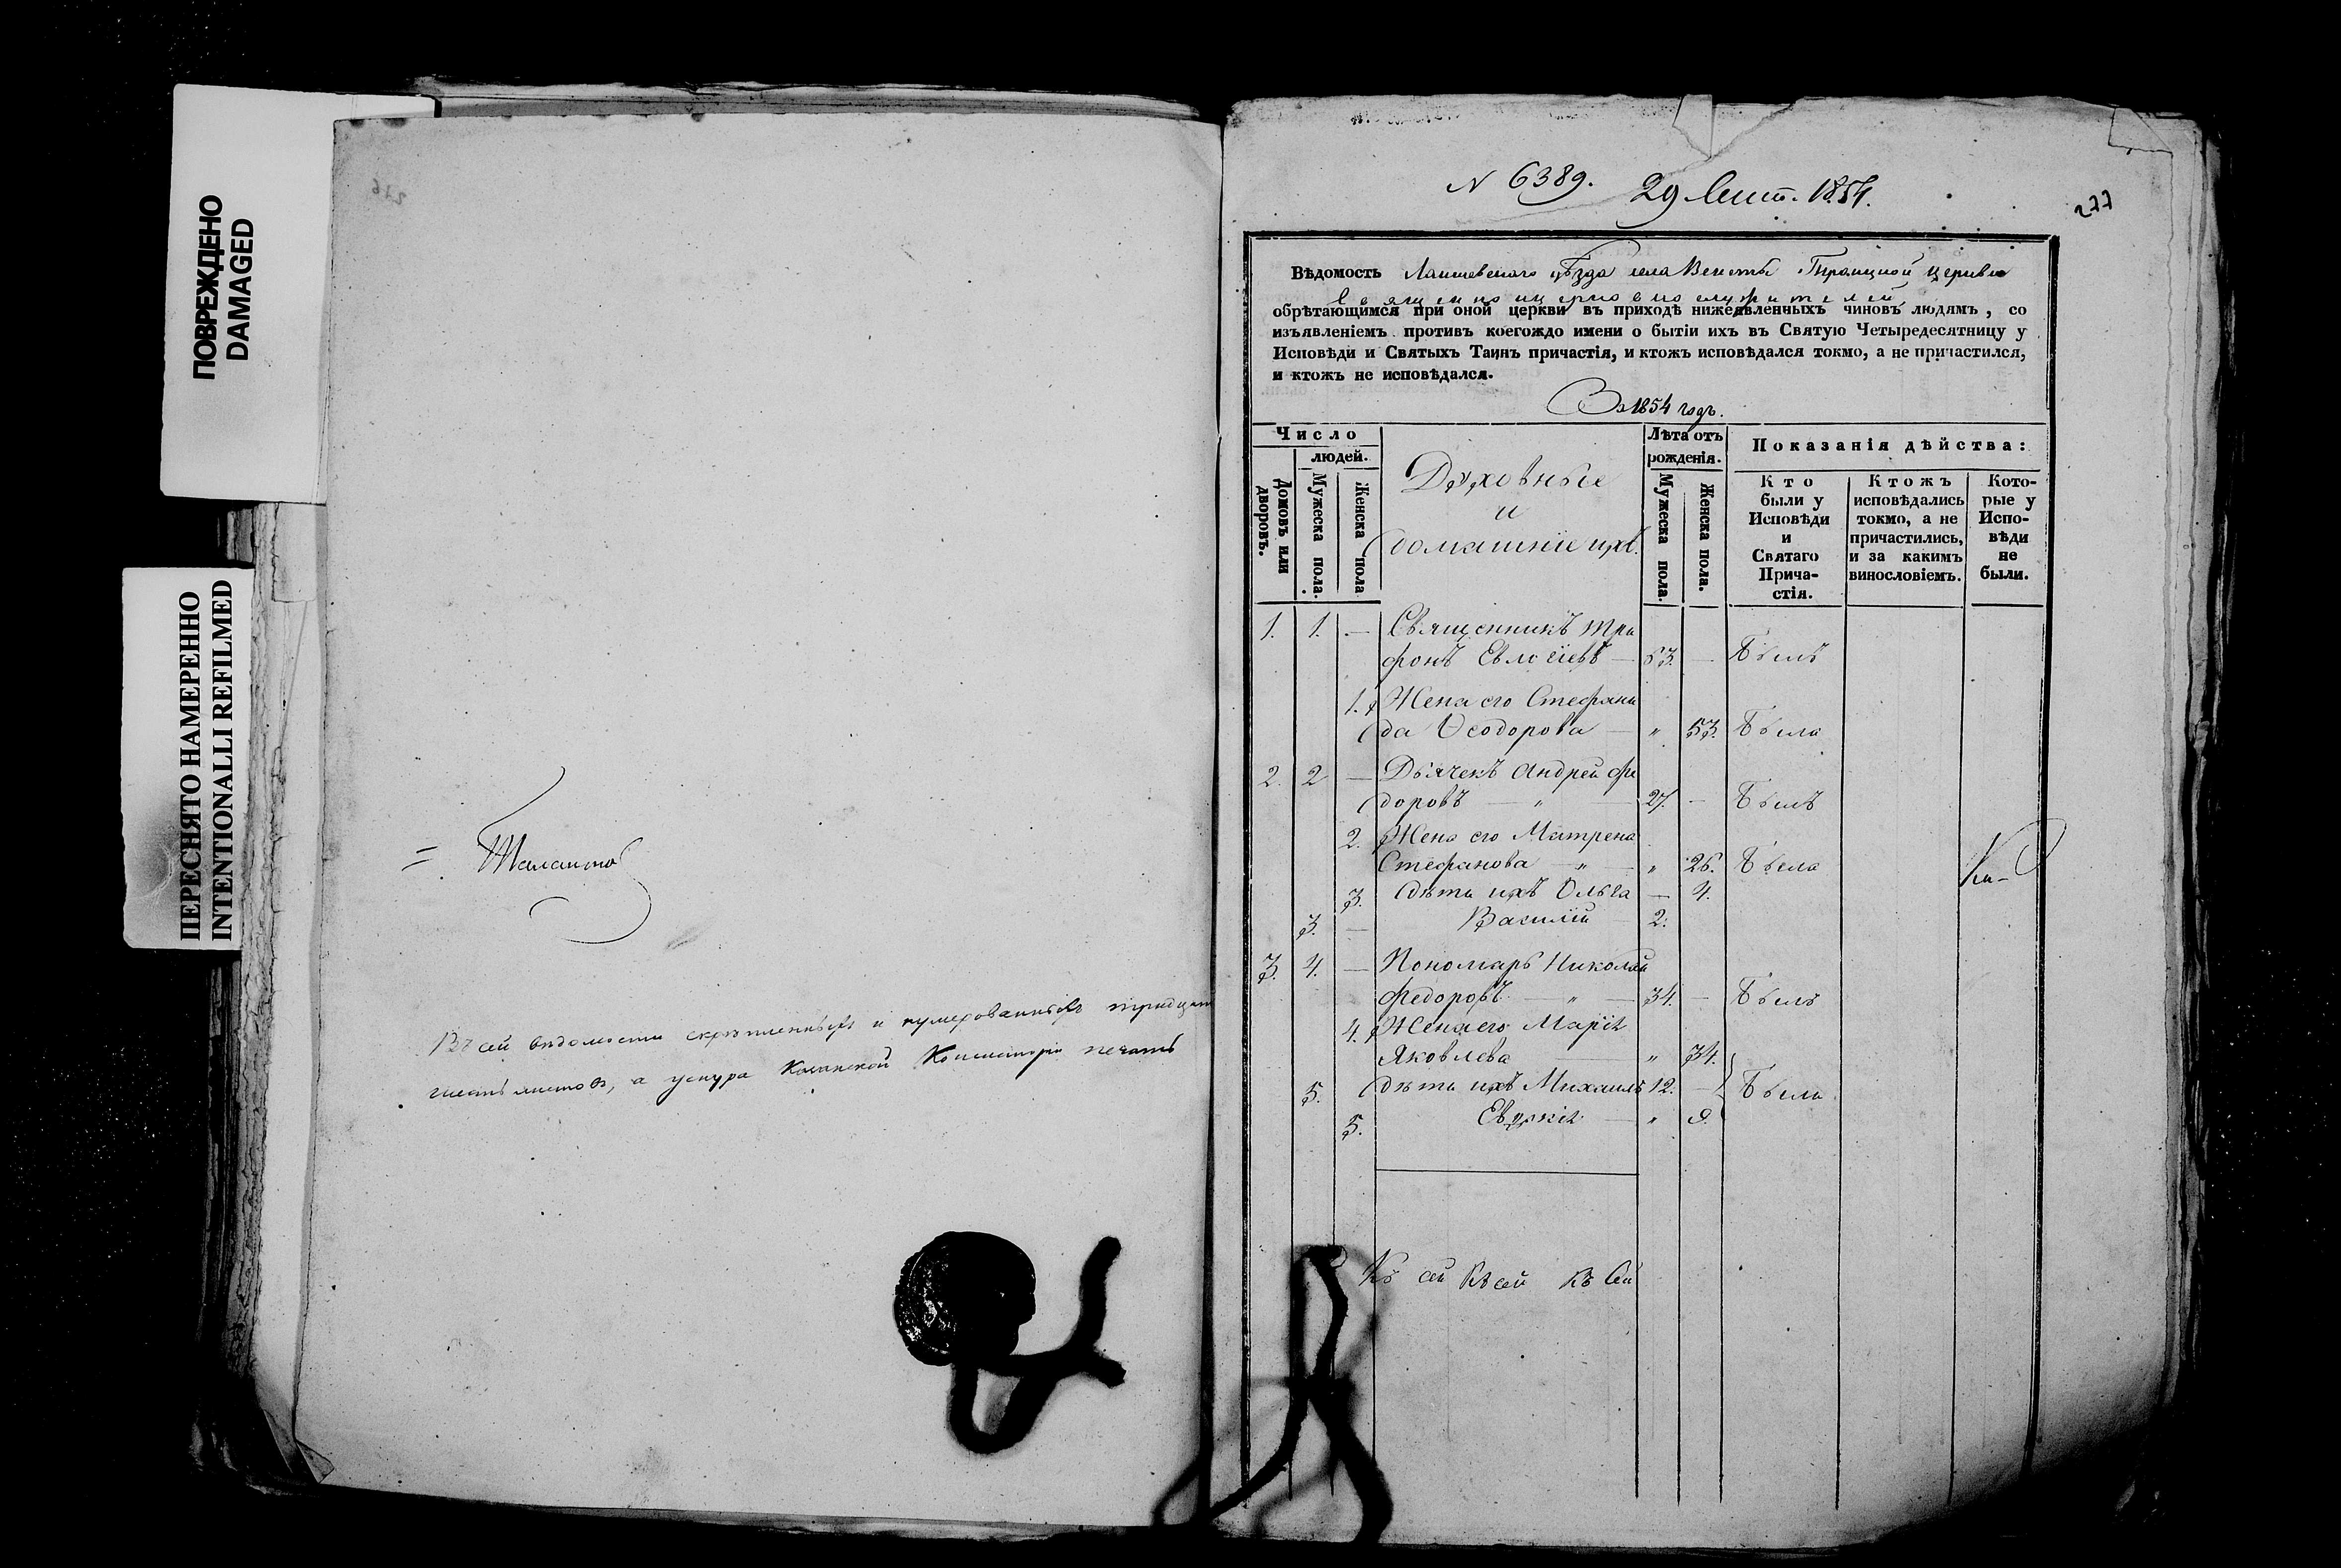 ПОВРЕЖДЕНО
DAMAGED
ПЕРЕСНЯТО НАМЕРЕННО
INTENTIONALLI REFILMED
276
Въ сей ведомости скрѣпленныхъ и нумерованныхъ тридцать
листовъ, а у снура Казанской Консисторіи печать
N 6389. 29 Сент. 1854.
277
Вѣдомость Лаишевскаго уѣзда села Троицкой церкви
Священноцерковнослужителей
обрѣтающимся при оной церкви въ приходѣ нижеявленныхъ чиновъ людямъ, со
изъявленіемъ противъ коегождо имени о бытіи ихъ въ Святую Четыредесятницу у
Исповѣди и Святыхъ Таинъ причастія, и ктожъ исповѣдался токмо, а не причастился,
и ктожъ не исповѣдался.
За 1854 годъ.
Число
людей.
Домовъ или дворовъ.
Мужеска пола.
Женска пола
Духовные
и
домашніе ихъ.
Лѣта отъ
рожденія.
Мужеска пола.
Женска пола.
Показанія дѣйства:
Кто
были у
Исповѣди
и
Святаго
Прича-
стія.
Ктожъ
исповѣдались
токмо, а не
причастились,
и за какимъ
винословіемъ.
Кото-
рые у
Испо-
вѣди
не
были.
1. 1. — Священникъ Три
фонъ — 53. — Былъ
1. Жена его Стефани
да Ѳеодорова — „ 53. Была
2. 2 — Дьячекъ Андрей Фе
доровъ — „ — 27. — Былъ
2. Жена его Матрена
Стефанова — „ — „ 26. Была
3. дѣти ихъ Ольга — 4.
3. — Василій — 2.
3. 4. — Пономарь Николай
Федоровъ — „ — 34. — Былъ
4. Жена его Марія
Яковлева — „ 34.
5. дѣти ихъ Михаилъ 12. — Были
5. — „ 9.
Къ сей Къ сей Къ Сей